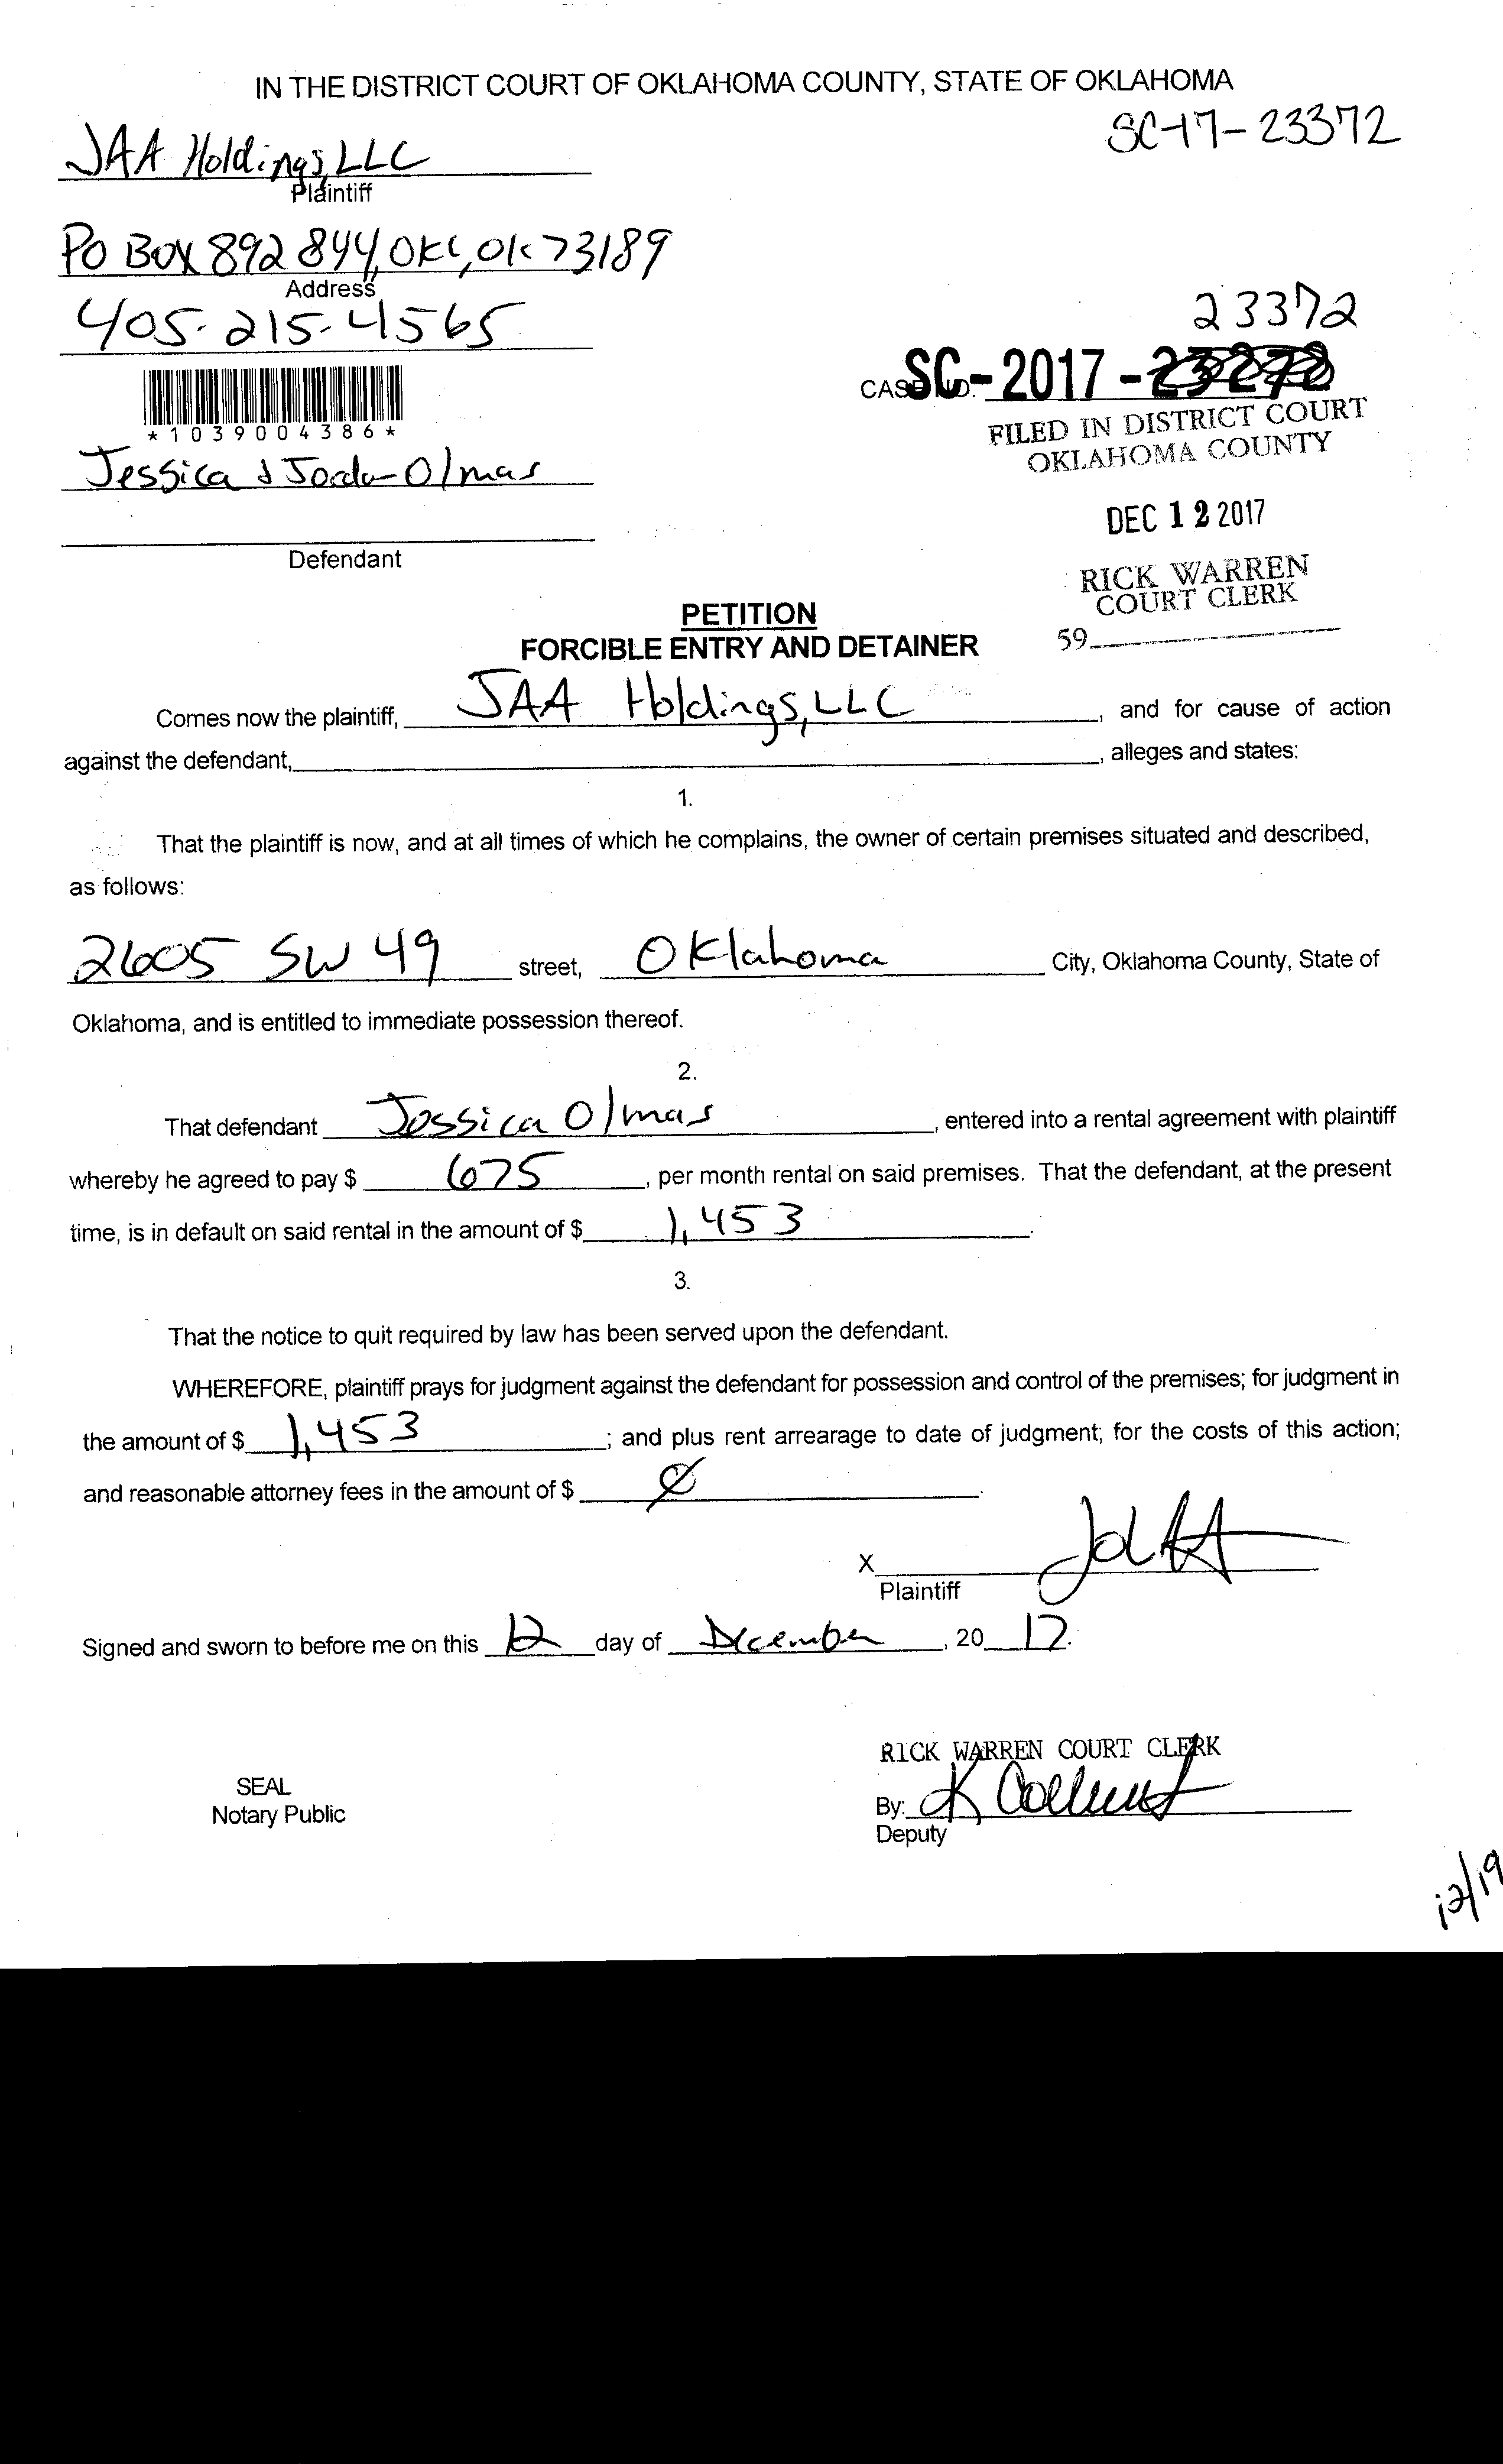 IN THE DISTRICT COURT OF OKLAHOMA COUNTY, STATE OF OKLAHOMA
SC-17-23372
JAA Holdings, LLC
Plaintiff
PO BOX 892844, OKC, OK 73189
Address
405-215-4565
23372
CASE NO. SC-2017-
FILED IN DISTRICT COURT
OKLAHOMA COUNTY
*1039004386*
Jessica & Olmas
DEC 12 2017
Defendant
RICK WARREN
COURT CLERK
59
PETITION
FORCIBLE ENTRY AND DETAINER
Comes now the plaintiff, JAA Holdings, LLC, and for cause of action
against the defendant,, alleges and states:
1.
That the plaintiff is now, and at all times of which he complains, the owner of certain premises situated and described,
as follows:
2605 SW 49 street, Oklahoma City, Oklahoma County, State of
Oklahoma, and is entitled to immediate possession thereof.
2.
That defendant Jessica Olmas, entered into a rental agreement with plaintiff
whereby he agreed to pay $ 675, per month rental on said premises. That the defendant, at the present
time, is in default on said rental in the amount of $ 1,453.
3.
That the notice to quit required by law has been served upon the defendant.
WHEREFORE, plaintiff prays for judgment against the defendant for possession and control of the premises; for judgment in
the amount of $ 1,453; and plus rent arrearage to date of judgment; for the costs of this action;
and reasonable attorney fees in the amount of $ Ø.
X
Plaintiff
Signed and sworn to before me on this 12 day of December, 2017.
RICK WARREN COURT CLERK
SEAL
Notary Public
By: K
Deputy
12/19